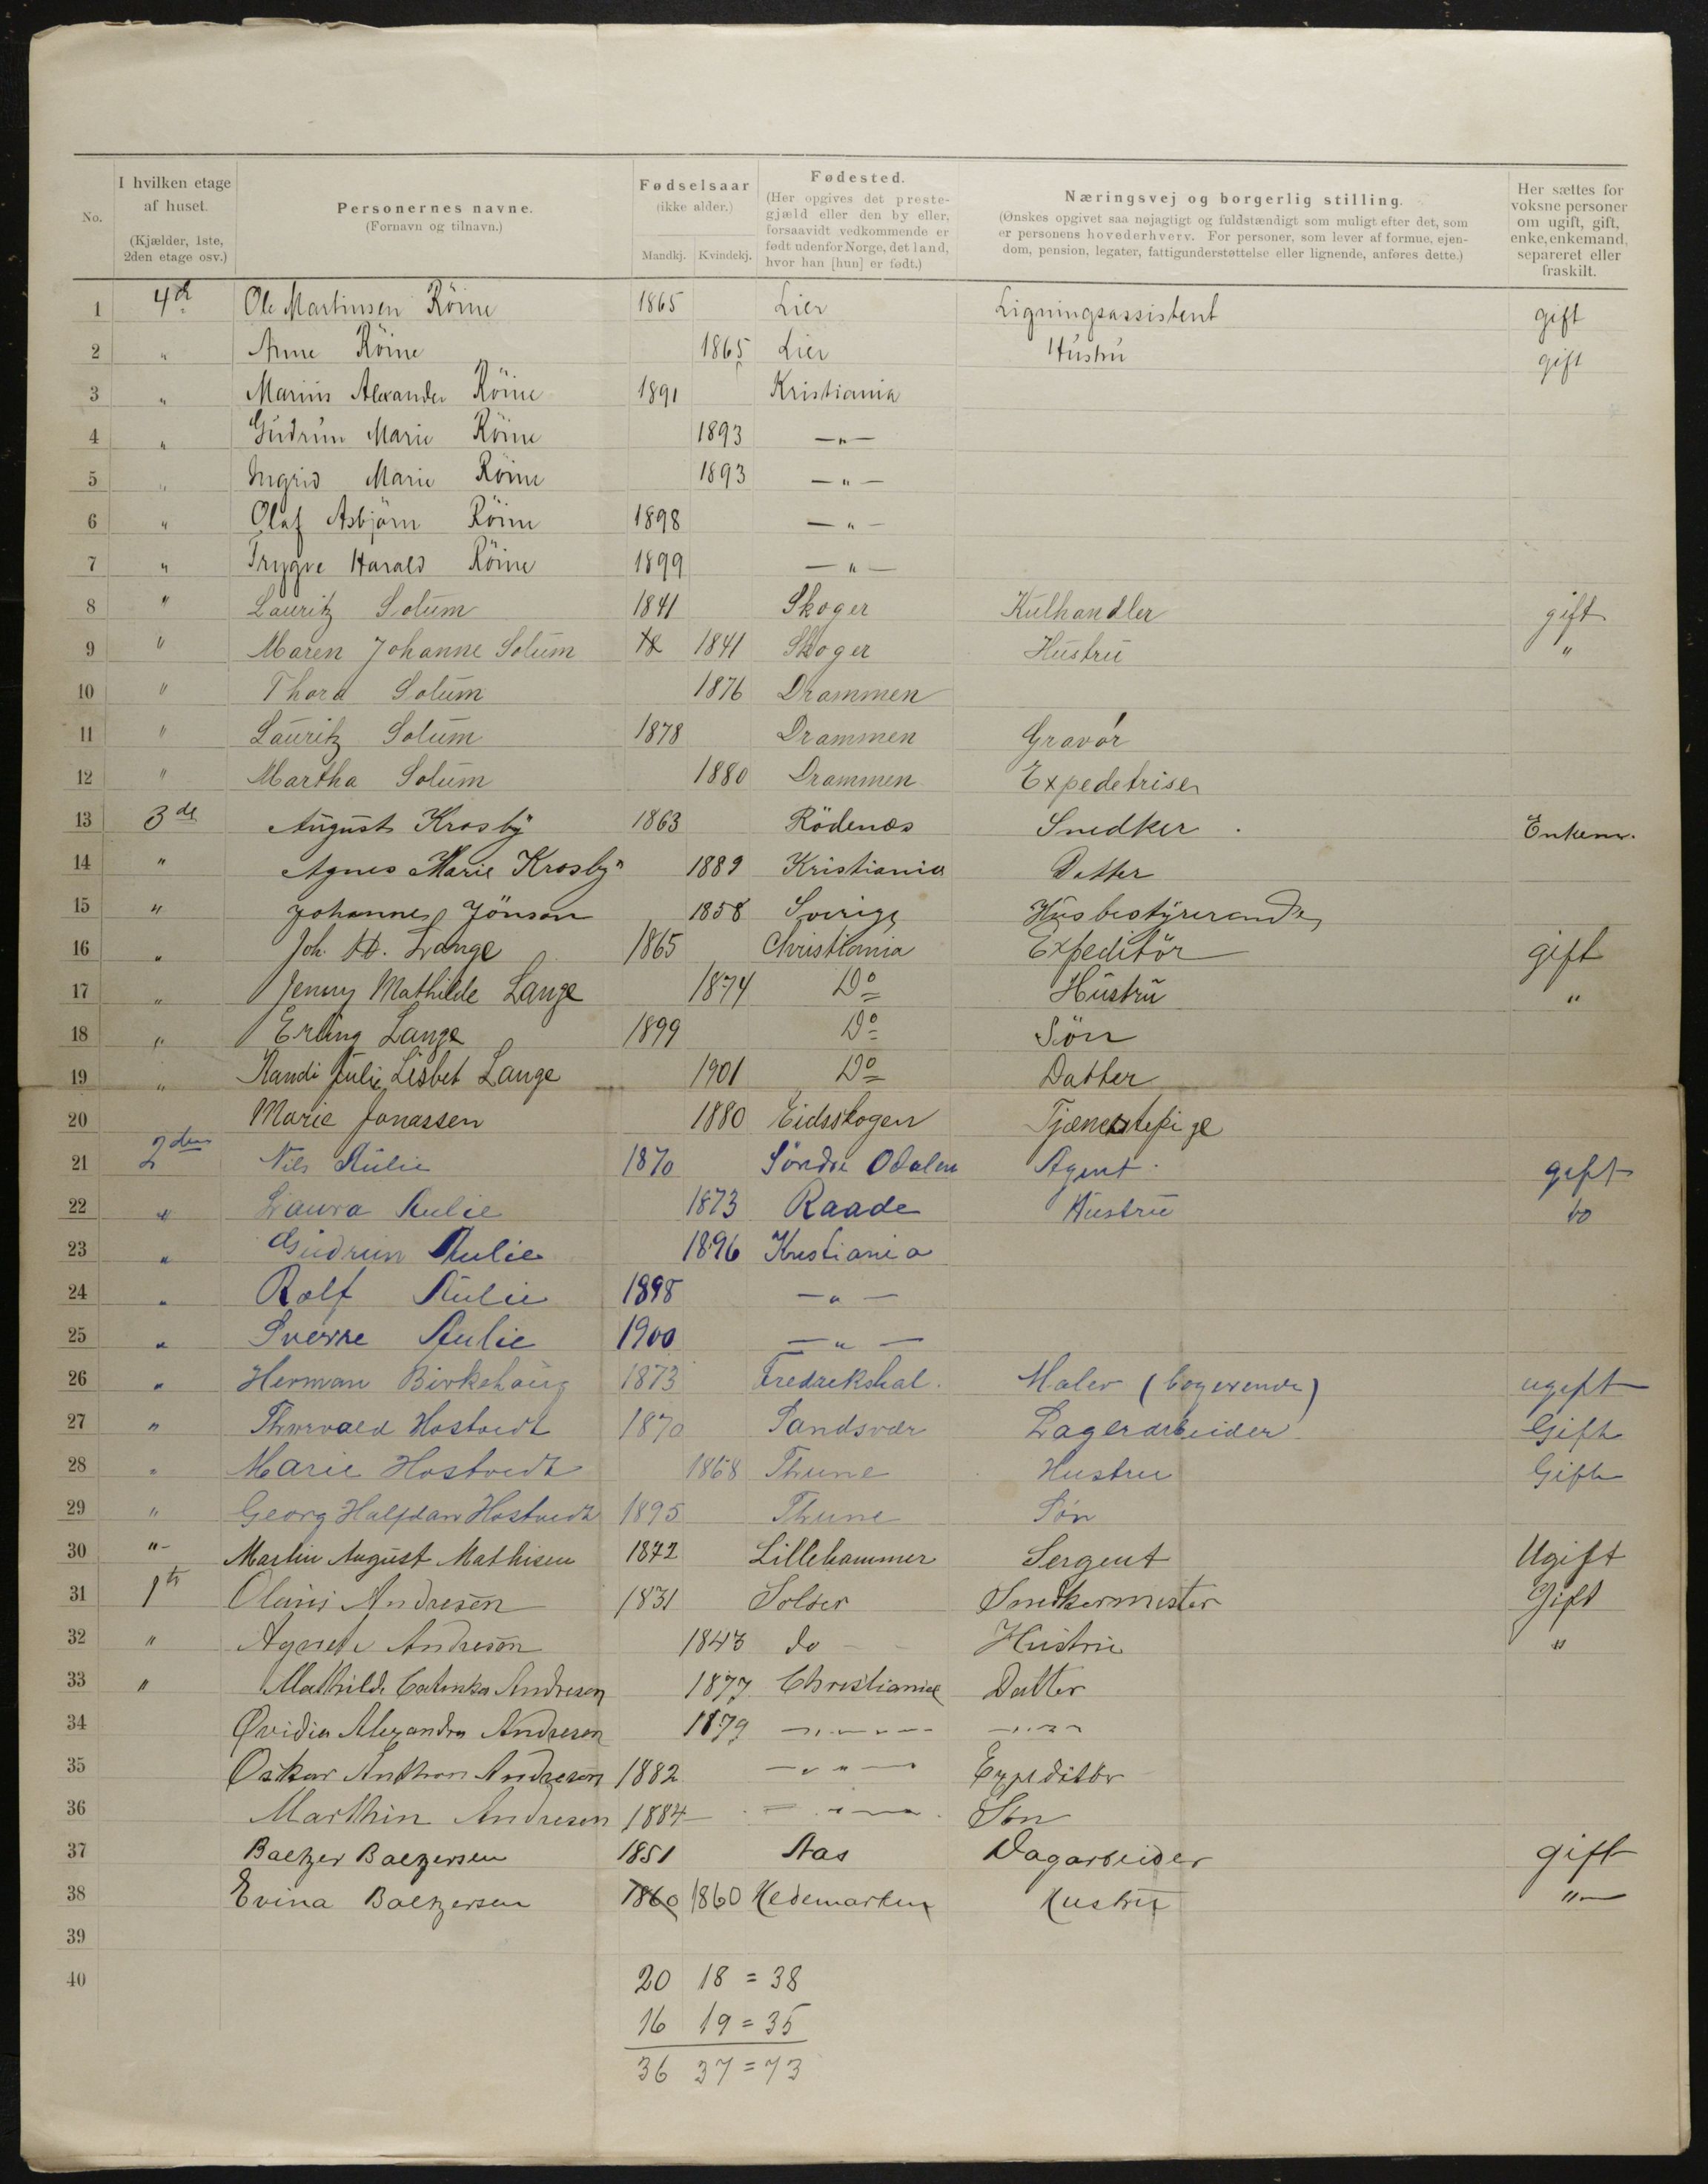 No.
I hvilken etage af huset.
(Kjælder, 1ste, 2den etage osv.)
Personernes navne.
(Fornavn og tilnavn.)
Fødselsaar
(ikke alder.)
Mandkj. Kvindekj.
Fødested.
(Her opgives det preste-
gjæld eller den by eller,
forsaavidt vedkommende er
født udenfor Norge, det land,
hvor han [hun] er født.)
Næringsvej og borgerlig stilling.
(Ønskes opgivet saa nøjagtigt og fuldstændigt som muligt efter det, som
er personens hovederhverv. For personer, som lever af formue, ejen-
dom, pension, legater, fattigunderstøttelse eller lignende, anføres dette.)
Her sættes for
voksne personer
om ugift, gift,
enke, enkemand,
separeret eller
fraskilt.
1 4de Ole Martinsen Röine 1865 Lier Ligningsassistent gift
2 " Anne Röine 1865 Lier Hustru gift
3 " Marius Alexander Röine 1891 Kristiania
4 " Gudrun Marie Röine 1893 —"—
5 " Ingrid Marie Röine 1893 —"—
6 " Olaf Asbjörn Röine 1898 —"—
7 " Trygve Harald Röine 1899 —"—
8 " Lauritz Solum 1841 Skoger Kulhandler gift
9 " Maren Johanne Solum 18 1841 Skoger Hustru "
10 " Thora Solum 1876 Drammen
11 " Lauritz Solum 1878 Drammen Gravør
12 " Martha Solum 1880 Drammen Expedetrise
13 3de August Krosby 1863 Rödenes Snedker Enkem.
14 " Agnes Marie Krosby 1889 Kristiania Datter
15 " Johanne Jönson 1858 Sverige Husbestyrerande
16 " Joh. Lange 1865 Christiania Expeditör gift
17 " Jenny Mathilde Lange 1874 Do Hustru "
18 " Erling Lange 1899 Do Sön
19 " Randi Julie Lisbet Lange 1901 Do Datter
20 Marie Jonassen 1880 Eidsskogen Tjenestepige
21 2den Nils Aulie 1870 Söndre Odalen Agent gift
22 " Laura Aulie 1873 Raade Hustru do
23 " Gudrun Aulie 1896 Kristiania
24 " Rolf Aulie 1898 —"—
25 " Sverre Aulie 1900 —"—
26 " Herman Birkehaug 1873 Fredrekshal. Maler (logerende) ugift
27 " Thorvald Hostvedt 1870 Sandsvær Lagerarbeider Gift
28 " Marie Hostvedt 1868 Thune Hustru Gift
29 " Georg Halfdan Hostvedt 1895 Thune Søn
30 "- Martin August Mathisen 1872 Lillehammer Sergent Ugift
31 1te Olaus Andresen 1831 Soløer Snedkermester Gift
32 " Agnete Andresen 1843 do Hustru "
33 " Mathilde Catinka Andresen 1877 Christiania Datter
34 Ovidia Alexandra Andresen 1879 —"— —"—
35 Oskar Anthon Andresen 1882 —"— Expeditør
36 Marthin Andresen 1884 —"— Søn
37 Baltzer Baltzersen 1851 Aas Dagarbeider gift
38 Evina Baltzersen 1860 1860 Hedemarken Hustru "—
39
40
20 18 = 38
16 19 = 35
36 37 = 73